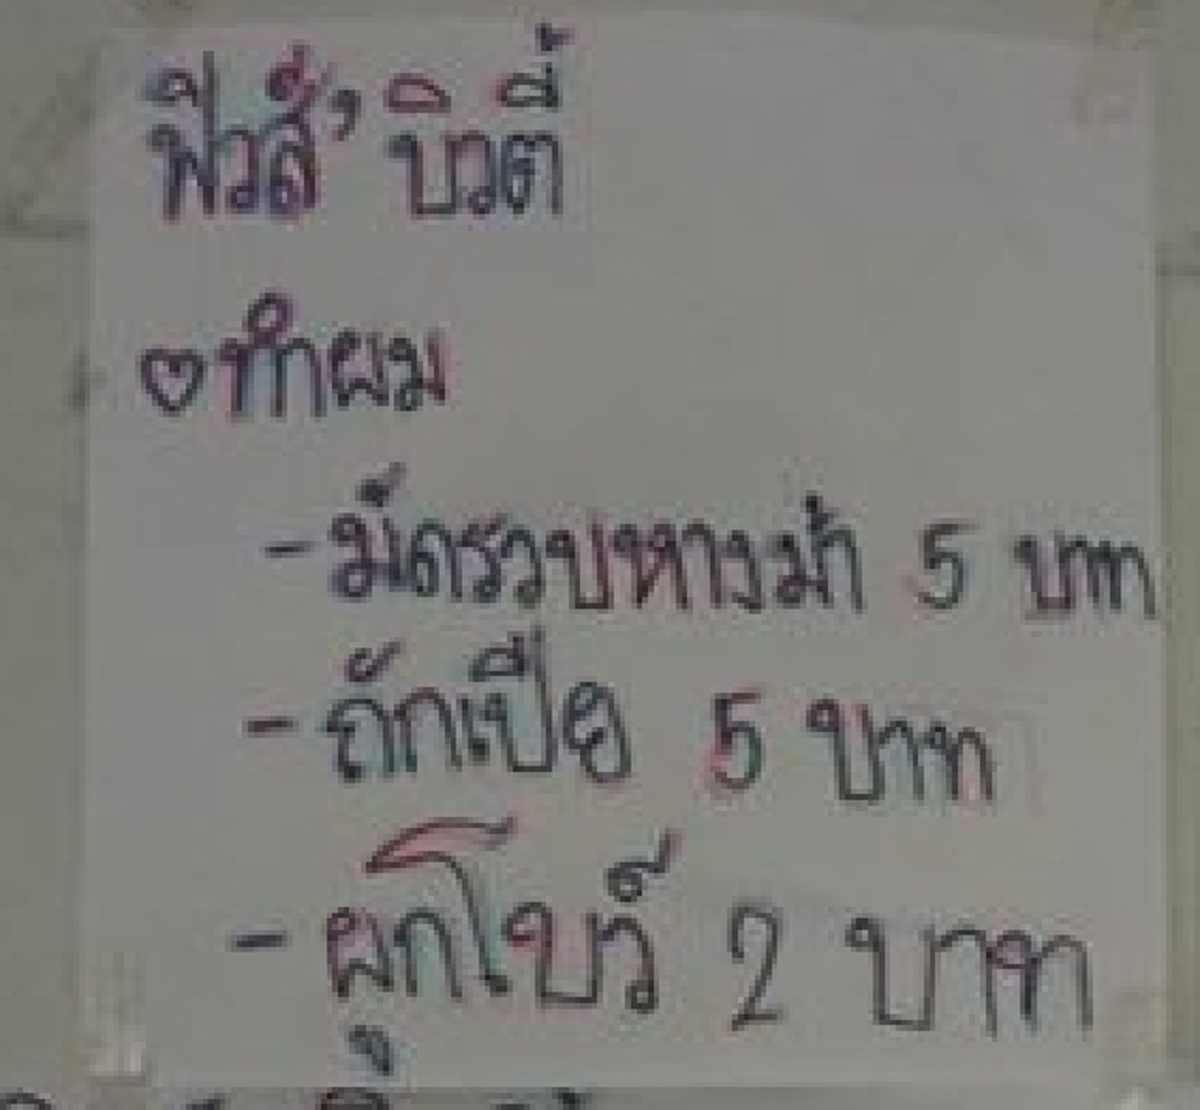 ฟิวส์’ บิวตี้
♡ทำผม
- มัดรวบหางม้า 5 บาท
- ถักเปีย 5 บาท
- ผูกโบว์ 2 บาท